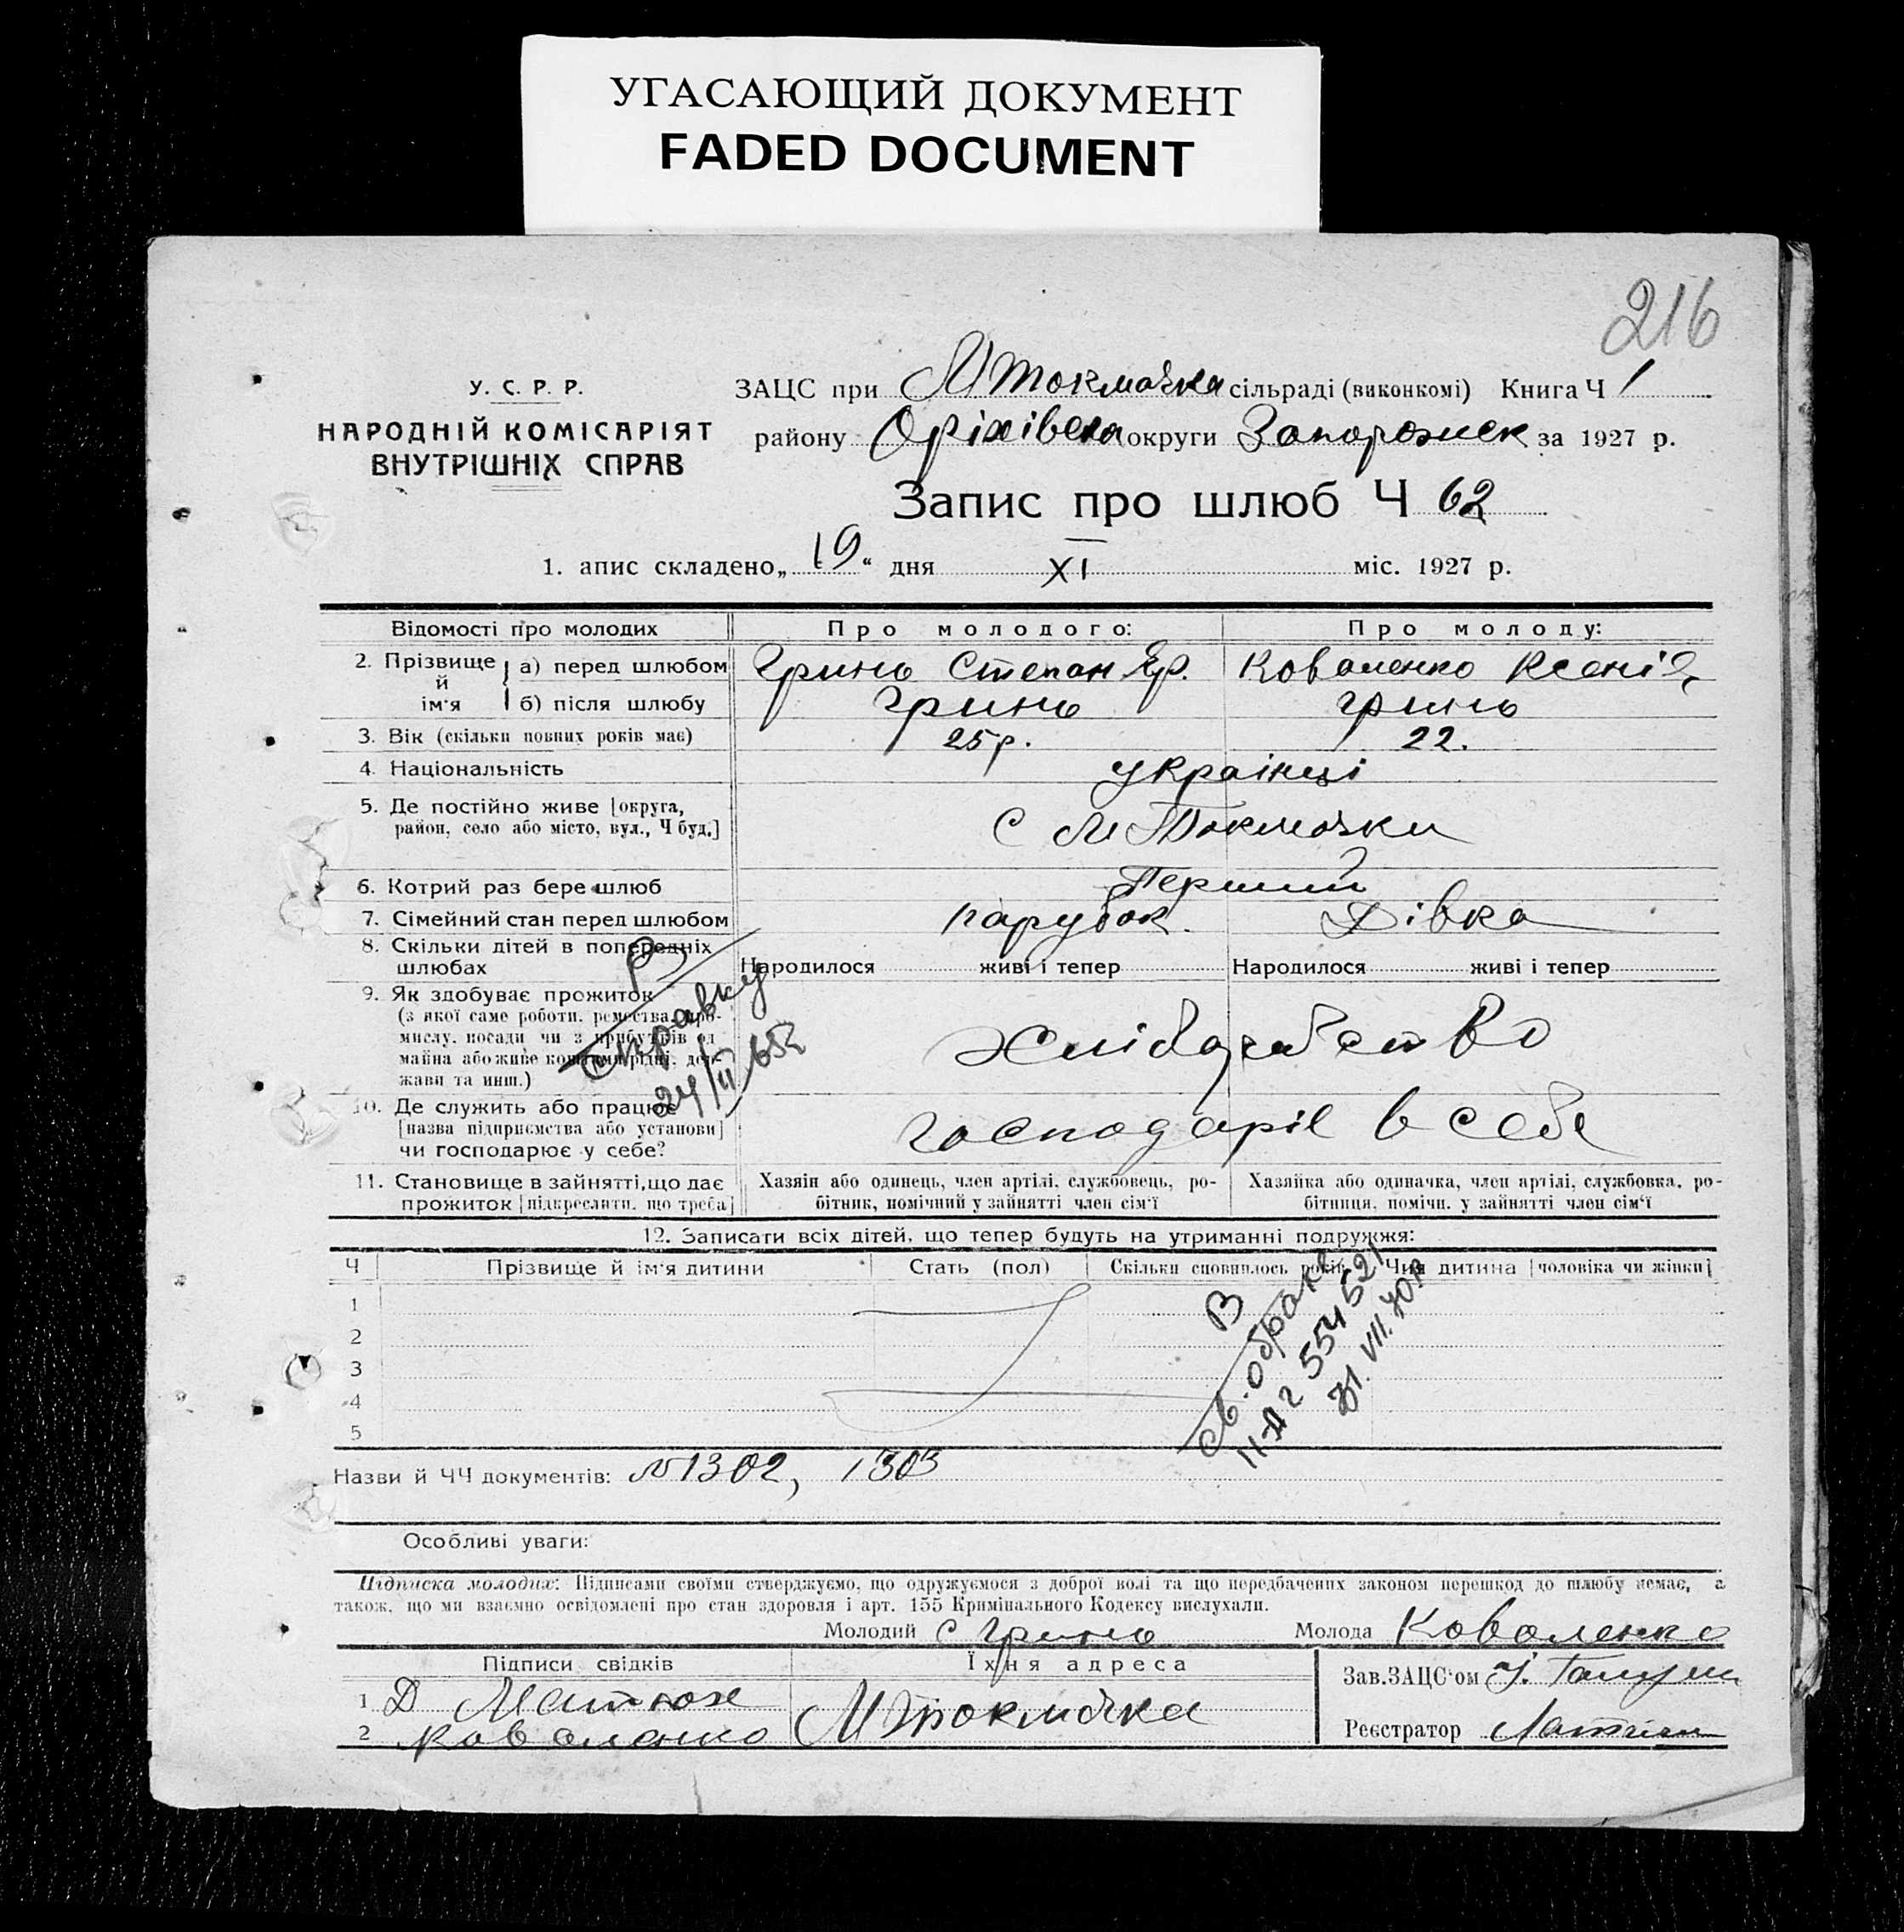 УГАСАЮЩИЙ ДОКУМЕНТ
FADED DOCUMENT
216
У. С. Р. Р.
НАРОДНІЙ КОМІСАРІЯТ
ВНУТРІШНІХ СПРАВ
ЗАЦС при М Токмачка сільраді (виконкомі) Книга Ч 1
району Оріхівськ округи Запорожск за 1927 р.
Запис про шлюб Ч 62
1. апис складено „ 19 “ дня XI міс. 1927 р.
Відомості про молодих Про молодого: Про молоду:
2. Прізвище й ім'я а) перед шлюбом Гринь Степан Яр. Коваленко Ксенія
б) після шлюбу Гринь Гринь
3. Вік (скільки повних років має) 25 р. 22.
4. Національність українці
5. Де постійно живе [округа,
район, село або місто, вул., Ч буд.] С М Токмачки
6. Котрий раз бере шлюб Перший
7. Сімейний стан перед шлюбом парубок. Дівка
8. Скільки дітей в попередніх
шлюбах Народилося живі і тепер Народилося живі і тепер
9. Як здобуває прожиток
(з якої саме роботи, ремества, про-
мислу, посади чи з прибутків од
майна або живе коштами рідні, дер-
жави та инш.) Хліборобство
В
справку
24/II 65г
10. Де служить або працює
[назва підприємства або установи]
чи господарює у себе? господаріє в себе
11. Становище в зайнятті, що дає
прожиток [підкреслити, що треба]
Хазяїн або одинець, член артілі, службовець, ро-
бітник, помічний у зайнятті член сім'ї
Хазяйка або одиначка, член артілі, службовка, ро-
бітниця, помічн. у зайнятті член сім'ї
12. Записати всіх дітей, що тепер будуть на утриманні подружжя:
Ч Прізвище й ім'я дитини Стать (пол) Скільки сповнилось років Чия дитина [чоловіка чи жінки]
1
2
3
4
5
В
св. о браке
II-ЯГ 554521
31. VII. 70р
Назви й ЧЧ документів: №1302, 1303
Особливі уваги:
Підписка молодих: Підписами своїми стверджуємо, що одружуємося з доброї волі та що передбачених законом перешкод до шлюбу немає, а
також, що ми взаємно освідомлені про стан здоровля і арт. 155 Кримінального Кодексу вислухали.
Молодий С Гринь Молода Коваленко
Підписи свідків Їхня адреса
1 Д Матюх М Токмачка
2 Коваленко
Зав. ЗАЦС'ом
Реєстратор